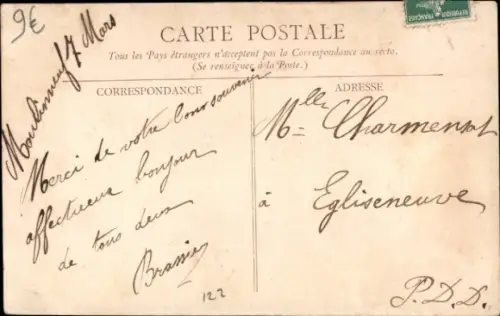 9€
CARTE POSTALE
Tous les Pays étrangers n'acceptent pas la Correspondance au recto.
(Se renseigner à la Poste.)
CORRESPONDANCE
ADRESSE
Moulinneuf 7 Mars
Merci de votre bon souvenir
affectueux bonjour
de tous deux
Brassier
122
Mlle Charmensat
à Egliseneuve
P.D.D.